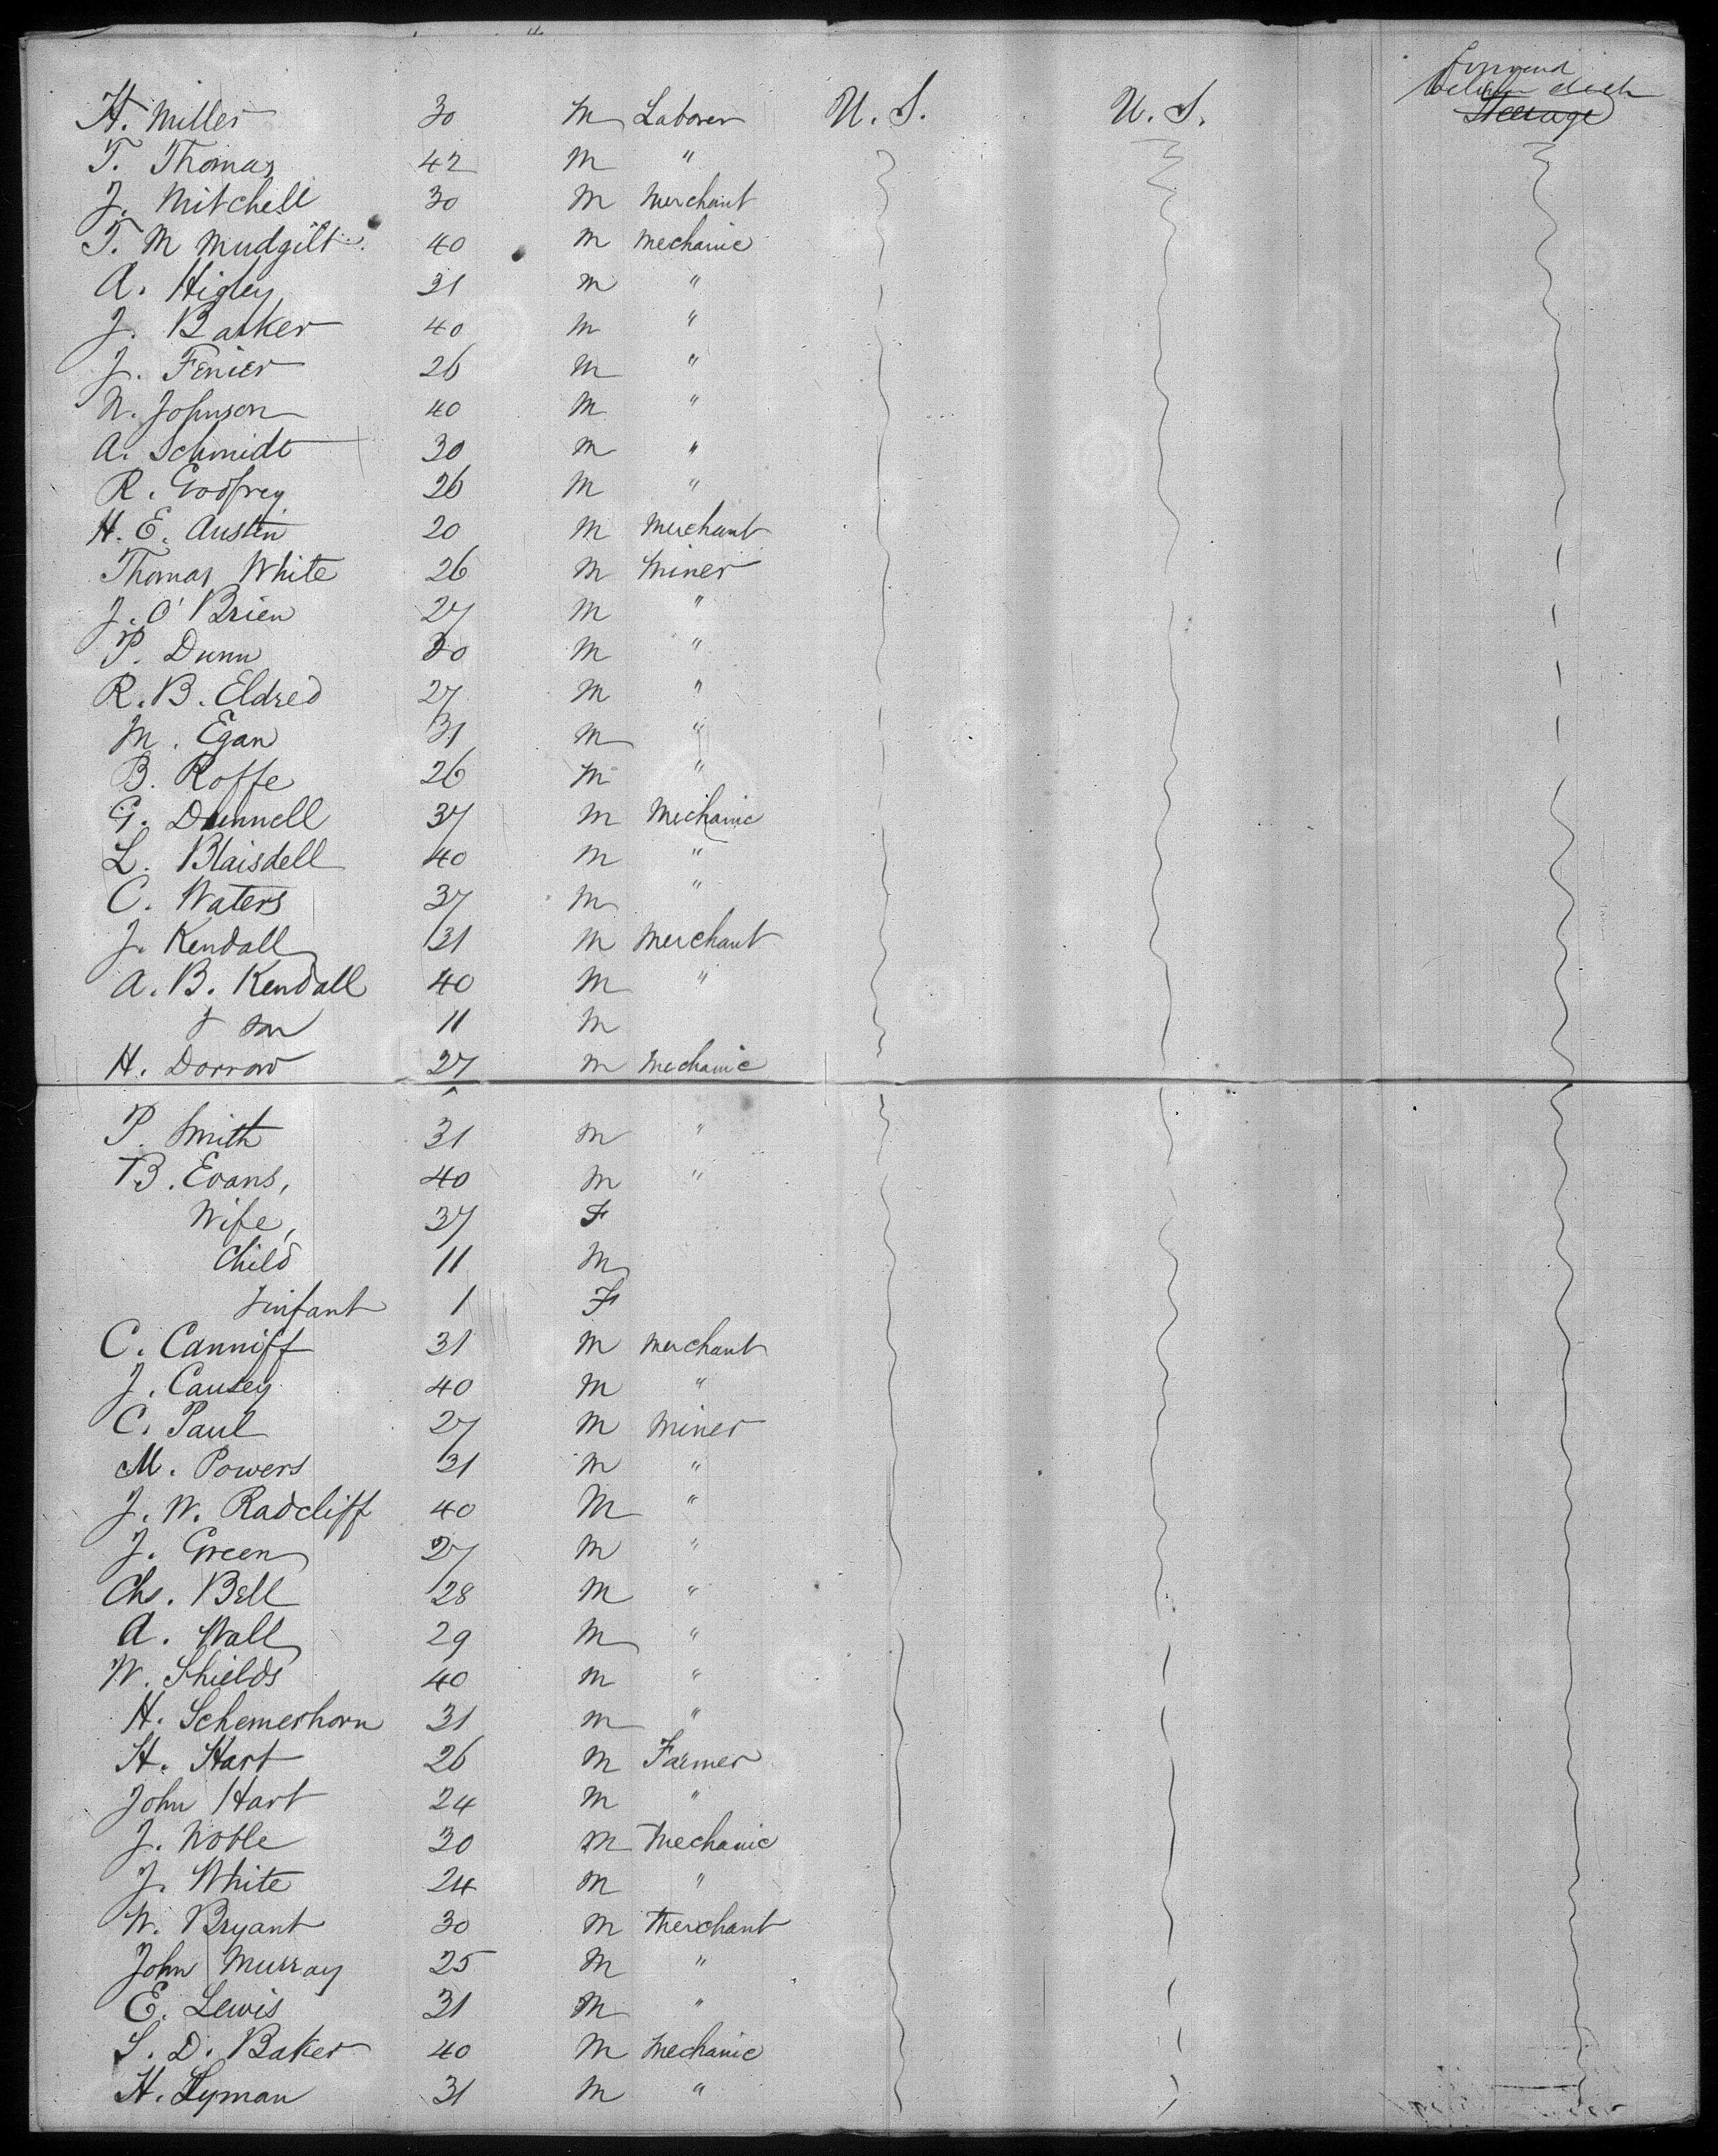 Forward
below deck
H. Miller 30 M Laborer U. S. U. S. Steerage
T. Thomas 42 M "
J. Mitchell 30 M Merchant
T. M Mudgilt 40 M Mechanic
A. Higley 31 M "
J. Barker 40 M "
J. Fenier 26 M "
N. Johnson 40 M "
A. Schmidt 30 M "
R. Godfrey 26 M "
H. E. Austin 20 M Merchant
Thomas White 26 M Miner
J. O'Brien 27 M "
P. Dunn 30 M "
R. B. Eldred 27 M "
M. Egan 31 M "
B. Roffe 26 M "
G. Dunnell 37 M Mechanic
L. Blaisdell 40 M "
C. Waters 37 M "
J. Kendall 31 M Merchant
A. B. Kendall 40 M "
& son 11 M
H. Dorrow 27 M Mechanic
P. Smith 31 M "
B. Evans, 40 M "
Wife, 37 F
Child 11 M
& infant 1 F
C. Canniff 31 M Merchant
J. Causey 40 M "
C. Paul 27 M Miner
M. Powers 31 M "
J. W. Radcliff 40 M "
J. Green 27 M "
Chs. Bell 28 M "
A. Wall 29 M "
W. Shields 40 M "
H. Schemerhorn 31 M "
H. Hart 26 M Farmer
John Hart 24 M "
J. Noble 30 M Mechanic
J. White 24 M "
W. Bryant 30 M Merchant
John Murray 25 M "
E. Lewis 31 M "
S. D. Baker 40 M Mechanic
H. Lyman 31 M "